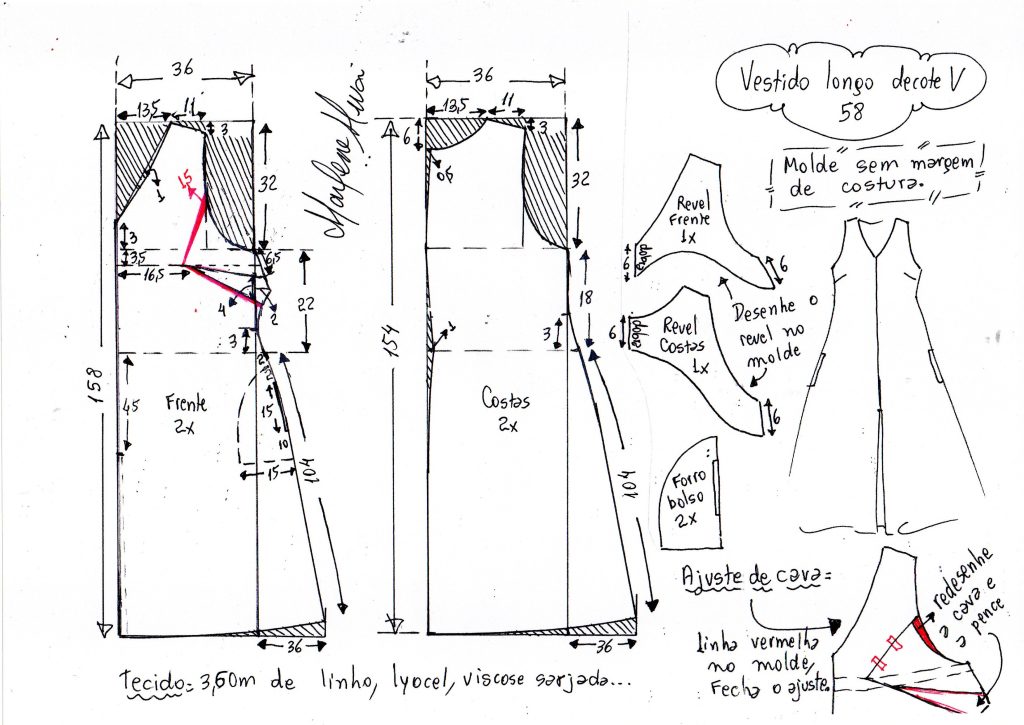 Vestido longo decote V
58
Molde sem margem
de costura.
Marlene Mukai
36
13,5
11
3
32
1,5
1
3
3,5
16,5
6,5
4
2
22
3
158
45
Frente
2x
2
12
15
10
15
104
36
36
13,5
11
3
6
0,5
32
18
154
1
3
Costas
2x
104
36
Revel
Frente
1x
dobra
6
6
Revel
Costas
1x
dobra
6
6
Desenhe o
revel no
molde
Forro
bolso
2x
Ajuste de cava=
linha vermelha
no molde,
Fecha o ajuste.
redesenhe
a cava e
a pence
Tecido= 3,60m de linho, lyocel, viscose sarjada...